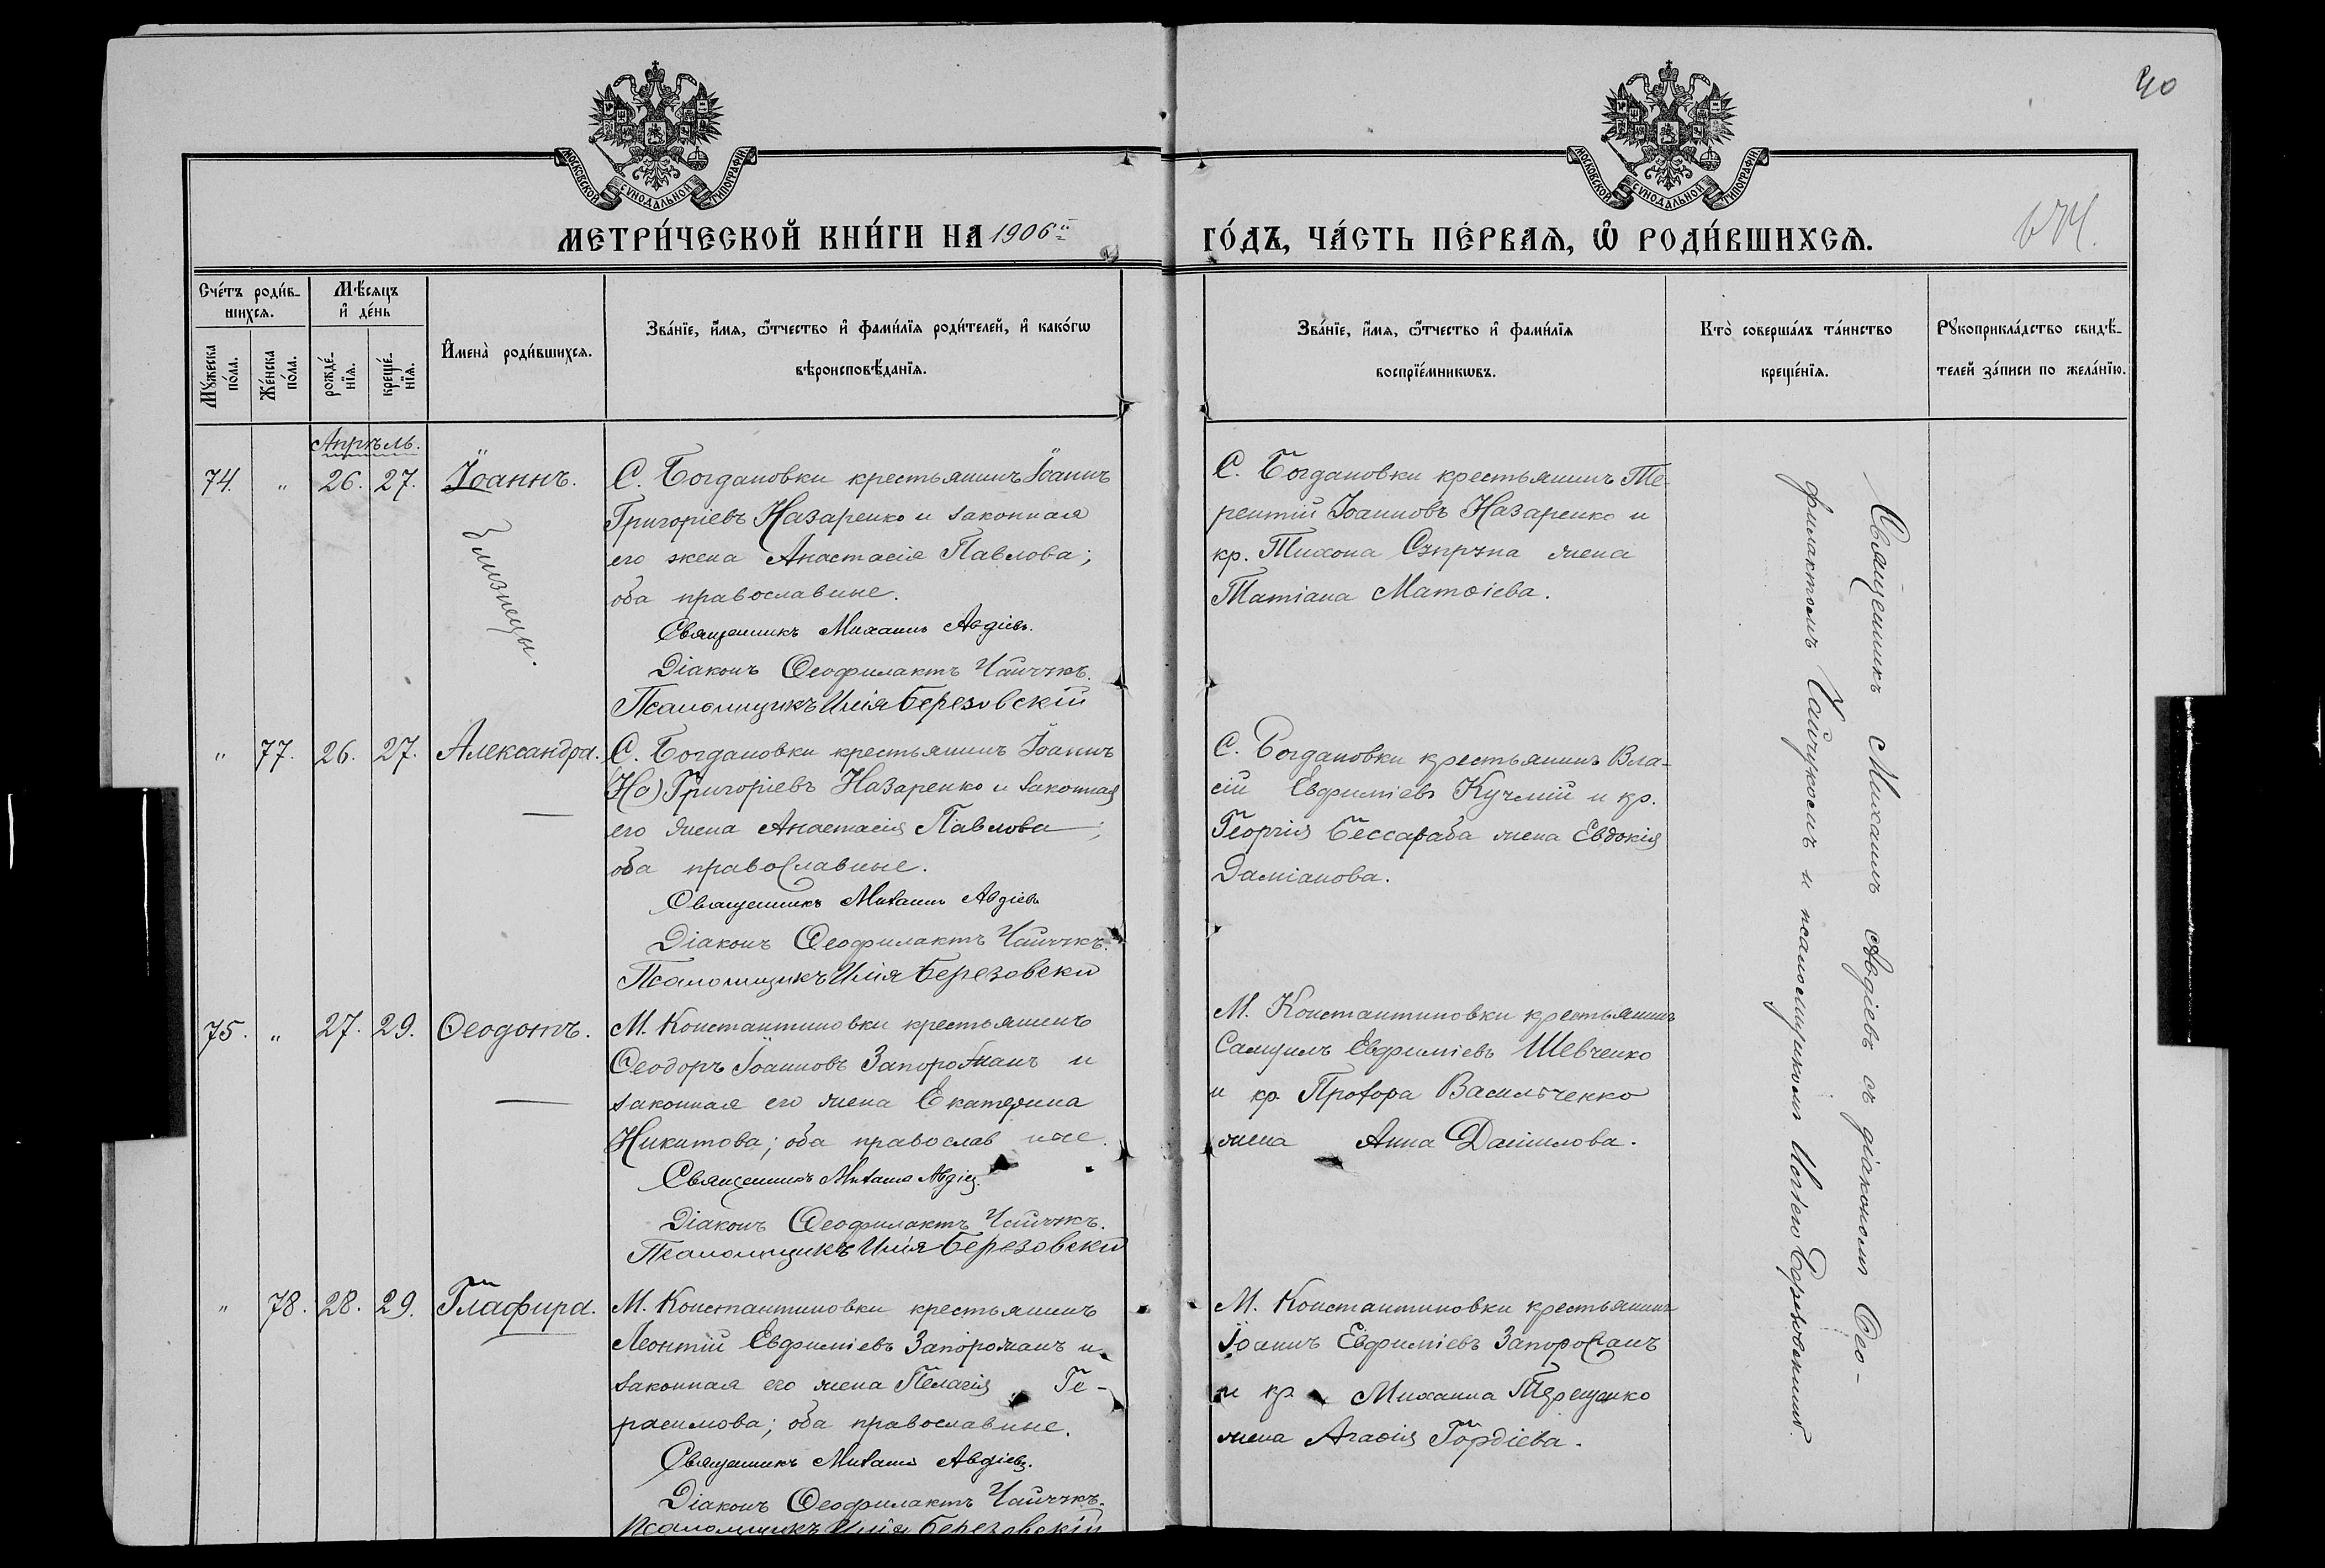 40
МОСКОВСКОЙ СѴНОДАЛЬНОЙ ТИПОГРАФІИ
МОСКОВСКОЙ СѴНОДАЛЬНОЙ ТИПОГРАФІИ
МЕТРИ́ЧЕСКОЙ КНИ́ГИ НА 1906й
ГО́ДЪ, ЧА́СТЬ ПЕ́РВАѦ, Ѽ РОДИ́ВШИХСѦ.
Сче́тъ роди́в-
шихсѧ.
Мꙋ́жеска по́ла.
Же́нска по́ла.
Мѣ́сѧцъ
и҆ де́нь
рожде́-
нїѧ.
креще́-
нїѧ.
И҆мена̀ роди́вшихсѧ.
Зва́нїе, и҆́мѧ, ѻ҆́тчество и҆ фами́лїѧ роди́телей, и҆ како́гѡ
вѣроисповѣ́данїѧ.
Зва́нїе, и҆́мѧ, ѻ҆́тчество и҆ фами́лїѧ
воспрїе́мникѡвъ.
Кто̀ соверша́лъ та́инство
креще́нїѧ.
Рꙋкоприкла́дство свидѣ́-
телей за́писи по жела́нїю.
Апрѣль.
74. " 26. 27. Іоаннъ.
близнецы.
С. Богдановки крестьянинъ Іоаннъ
Григоріевъ Назаренко и законная
его жена Анастасія Павлова;
оба православные.
Священникъ Михаилъ Авдіевъ.
Діаконъ Ѳеофилактъ Чайчукъ.
Псаломщикъ Илія Березовскій
С. Богдановки крестьянинъ Те-
рентій Іоанновъ Назаренко и
кр. Тихона жена
Татіана Матѳіева.
" 77. 26. 27. Александра.
С. Богдановки крестьянинъ Іоаннъ
(На) Григоріевъ Назаренко и законная
его жена Анастасія Павлова;
оба православные.
Священникъ Михаилъ Авдіевъ
Діаконъ Ѳеофилактъ Чайчукъ.
Псаломщикъ Илія Березовскій
С. Богдановки крестьянинъ Вла-
сій Евфиміевъ Кучмій и кр.
Георгія Бессараба жена Евдокія
Даміанова.
75. " 27. 29. Ѳеодотъ.
М. Константиновки крестьянинъ
Ѳеодоръ Іоанновъ Запорожанъ и
законная его жена Екатерина
Никитова; оба православные.
Священникъ Михаилъ Авдіевъ.
Діаконъ Ѳеофилактъ Чайчукъ.
Псаломщикъ Илія Березовскій
М. Константиновки крестьянинъ
Самуилъ Евфиміевъ Шевченко
и кр. Прохора Васильченко
жена Анна Даніилова.
" 78. 28. 29. Глафира.
М. Константиновки крестьянинъ
Леонтій Евфиміевъ Запорожанъ и
законная его жена Пелагія Ге-
расимова; оба православные.
Священникъ Михаилъ Авдіевъ.
Діаконъ Ѳеофилактъ Чайчукъ.
Псаломщикъ Илія Березовскій
М. Константиновки крестьянинъ
Іоаннъ Евфиміевъ Запорожанъ
и кр. Михаила Терещенко
жена Агаѳія Гордіева.
Священникъ Михаилъ Авдіевъ съ діакономъ Ѳео-
филактомъ Чайчукомъ и псаломщикомъ Иліею Березовскимъ.